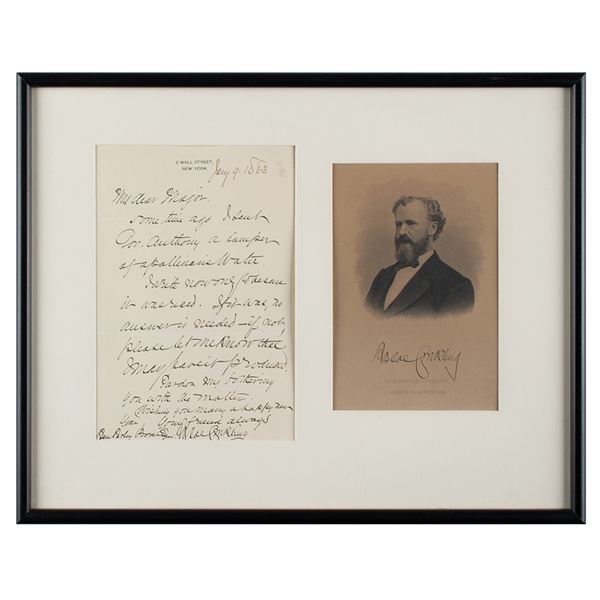 2 WALL STREET,
NEW YORK.
Jany 9. 1883
My dear Major.
Some time ago I sent
Gov. Anthony a hamper
of apollinaris Water.
I write now only to
it was recd. If it was, no
answer is needed – if not,
please let me know that
I may have it produced.
Pardon my bothering
you with the matter.
Wishing you many a happy new
year, Your friend always
Ben Perley Poore Roscoe Conkling
Roscoe Conkling
HON. ROSCOE CONKLING